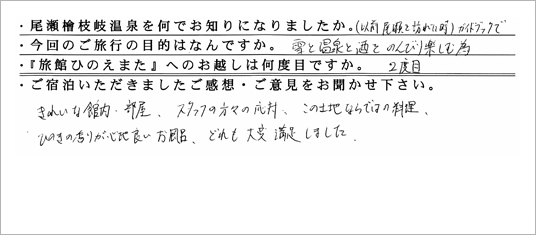 ・尾瀬檜枝岐温泉を何でお知りになりましたか。(以前尾瀬を訪れた時)ガイドブックで
・今回のご旅行の目的はなんですか。 雪と温泉と酒とのんびり楽しむ為
・『旅館ひのえまた』へのお越しは何度目ですか。 2度目
・ご宿泊いただきましたご感想・ご意見をお聞かせ下さい。
きれいな館内・部屋、スタッフの方々の応対、この土地ならではの料理、
ひのきの香りが心地良いお風呂、どれも大変満足しました。